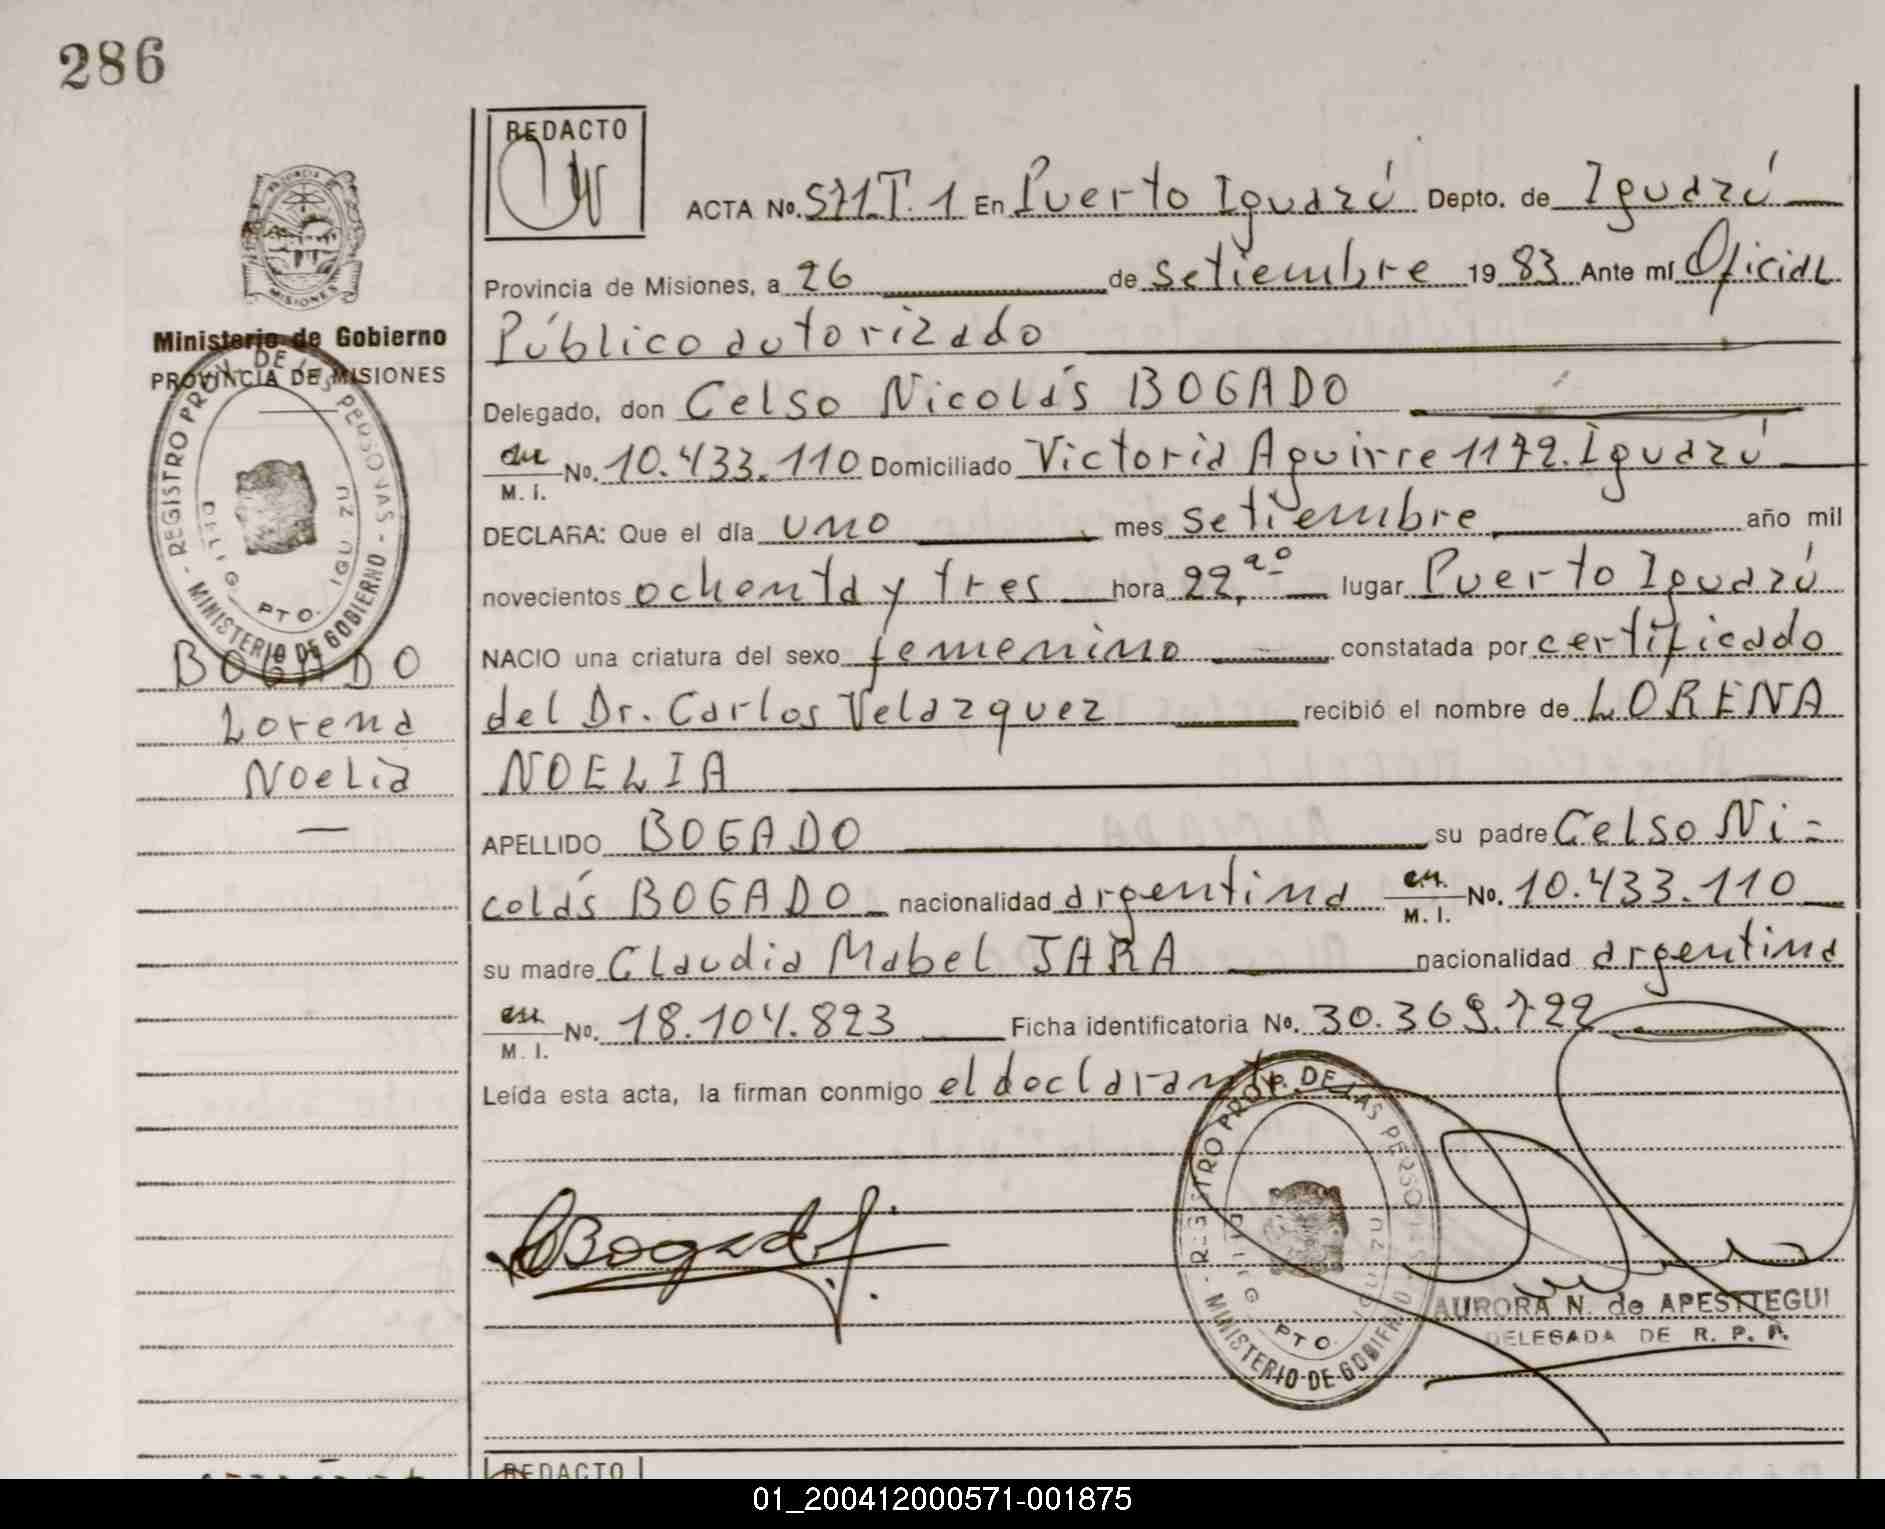 286
REDACTO
ACTA No. 571.T.1 En Puerto Iguazú Depto. de Iguazú
Provincia de Misiones, a 26 de setiembre 1983 Ante mí Oficial
Público autorizado
Delegado, don Celso Nicolás BOGADO
M. I. No. 10.433.110 Domiciliado Victoria Aguirre 1172. Iguazú
DECLARA: Que el día uno mes setiembre año mil
novecientos ochenta y tres hora 22, lugar Puerto Iguazú
NACIO una criatura del sexo femenino constatada por certificado
del Dr. Carlos Velazquez recibió el nombre de LORENA
NOELIA
APELLIDO BOGADO su padre Celso Ni=
colás BOGADO nacionalidad argentina M. I. No. 10.433.110
su madre Claudia Mabel JARA nacionalidad argentina
M. I. No. 18.104.823 Ficha identificatoria No. 30.369.722
Leída esta acta, la firman conmigo el declarante
Bogado
AURORA N. de APESTTEGUI
DELEGADA DE R. P. P.
REGISTRO PROV. DE LAS PERSONAS - MINISTERIO DE GOBIERNO
DELEG. PTO. IGUAZU
MISIONES
Ministerio de Gobierno
PROVINCIA DE MISIONES
REGISTRO PROV. DE LAS PERSONAS - MINISTERIO DE GOBIERNO
DELEG. PTO. IGUAZU
BOGADO
Lorena
Noelia
REDACTO
01_200412000571-001875